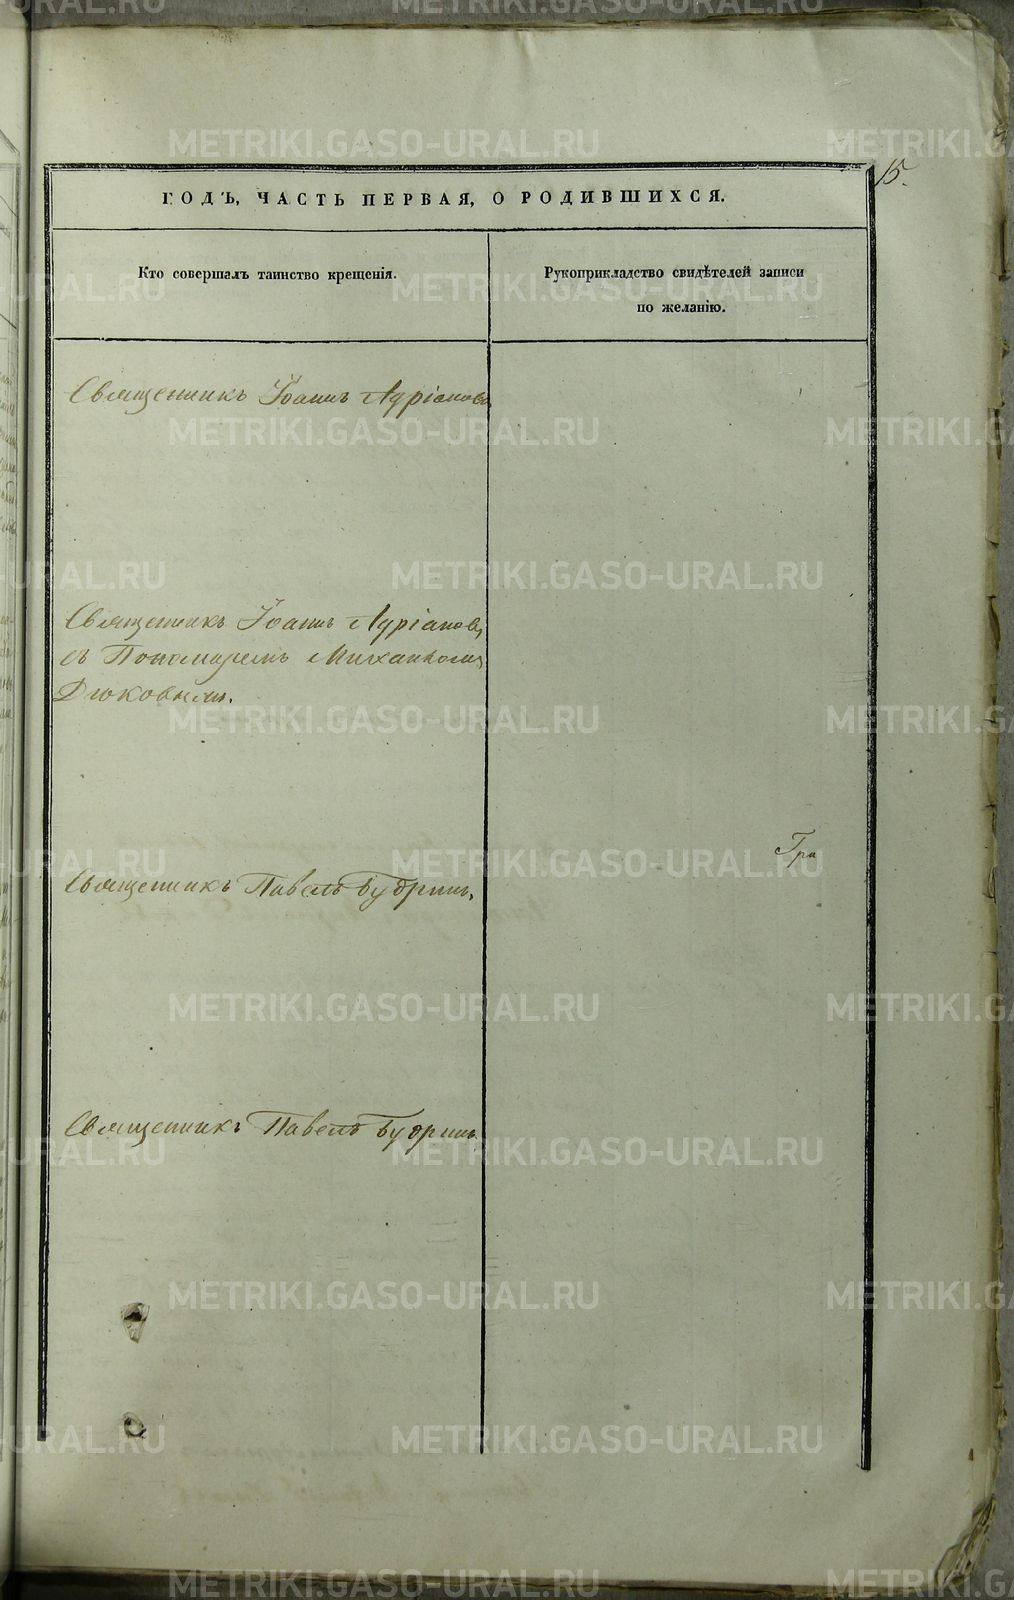 15.
ГОДЪ, ЧАСТЬ ПЕРВАЯ, О РОДИВШИХСЯ.
Кто совершалъ таинство крещенія.
Рукоприкладство свидѣтелей записи
по желанію.
Священникъ Іоаннъ Луріановъ
Священникъ Іоаннъ Луріановъ,
съ Пономаремъ Михаиломъ
Дюковымъ.
Гри
Священникъ Павелъ Будринъ,
Священникъ Павелъ Будринъ
METRIKI.GASO-URAL.RU